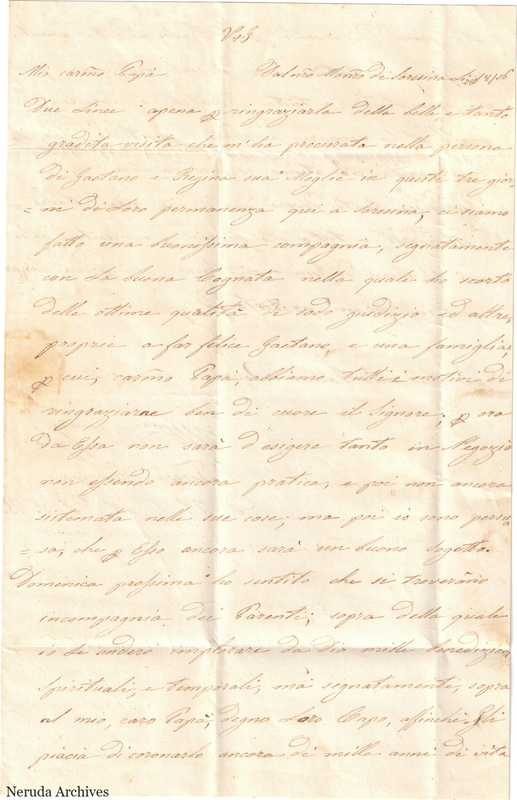 V + G
Mio carmo Papà Dal nro Monro di Soresina li
Due Linee apena p ringraziarla della bella e tanto
gradita visita che m'ha procurata nella persona
di Gaetano e Regina sua Moglie in questi tre gior
= ni di Loro permanenza qui a Soresina, ci siamo
fatto una buonissima compagnia, segnatamente
con la buona Cognata nella quale ho scorto
delle ottime qualità di sodo giudizio ed altre,
proprie a far felice Gaetano, e una famiglia,
p cui, carmo Papà, abbiamo tutti i motivi di
ringraziarne ben di cuore il Signore; p ora
da Essa non sarà d'esigere tanto in Negozio
non essendo ancora pratica, e poi non ancora
sistemata nelle sue cose; ma poi io sono persua
= sa, che p Esso ancora sarà un buono sogetto.
Domenica prossima ho sentito che si troveranno
incompagnia dei Parenti; sopra della quale
io Le anderò implorare da Dio mille benedizioni
spirituali, e temporali, mà segnatamente, sopra
al mio, caro Papà, degno Loro Capo, affinchè Gli
piacia di coronarlo ancora di mille anni di vita
Neruda Archives